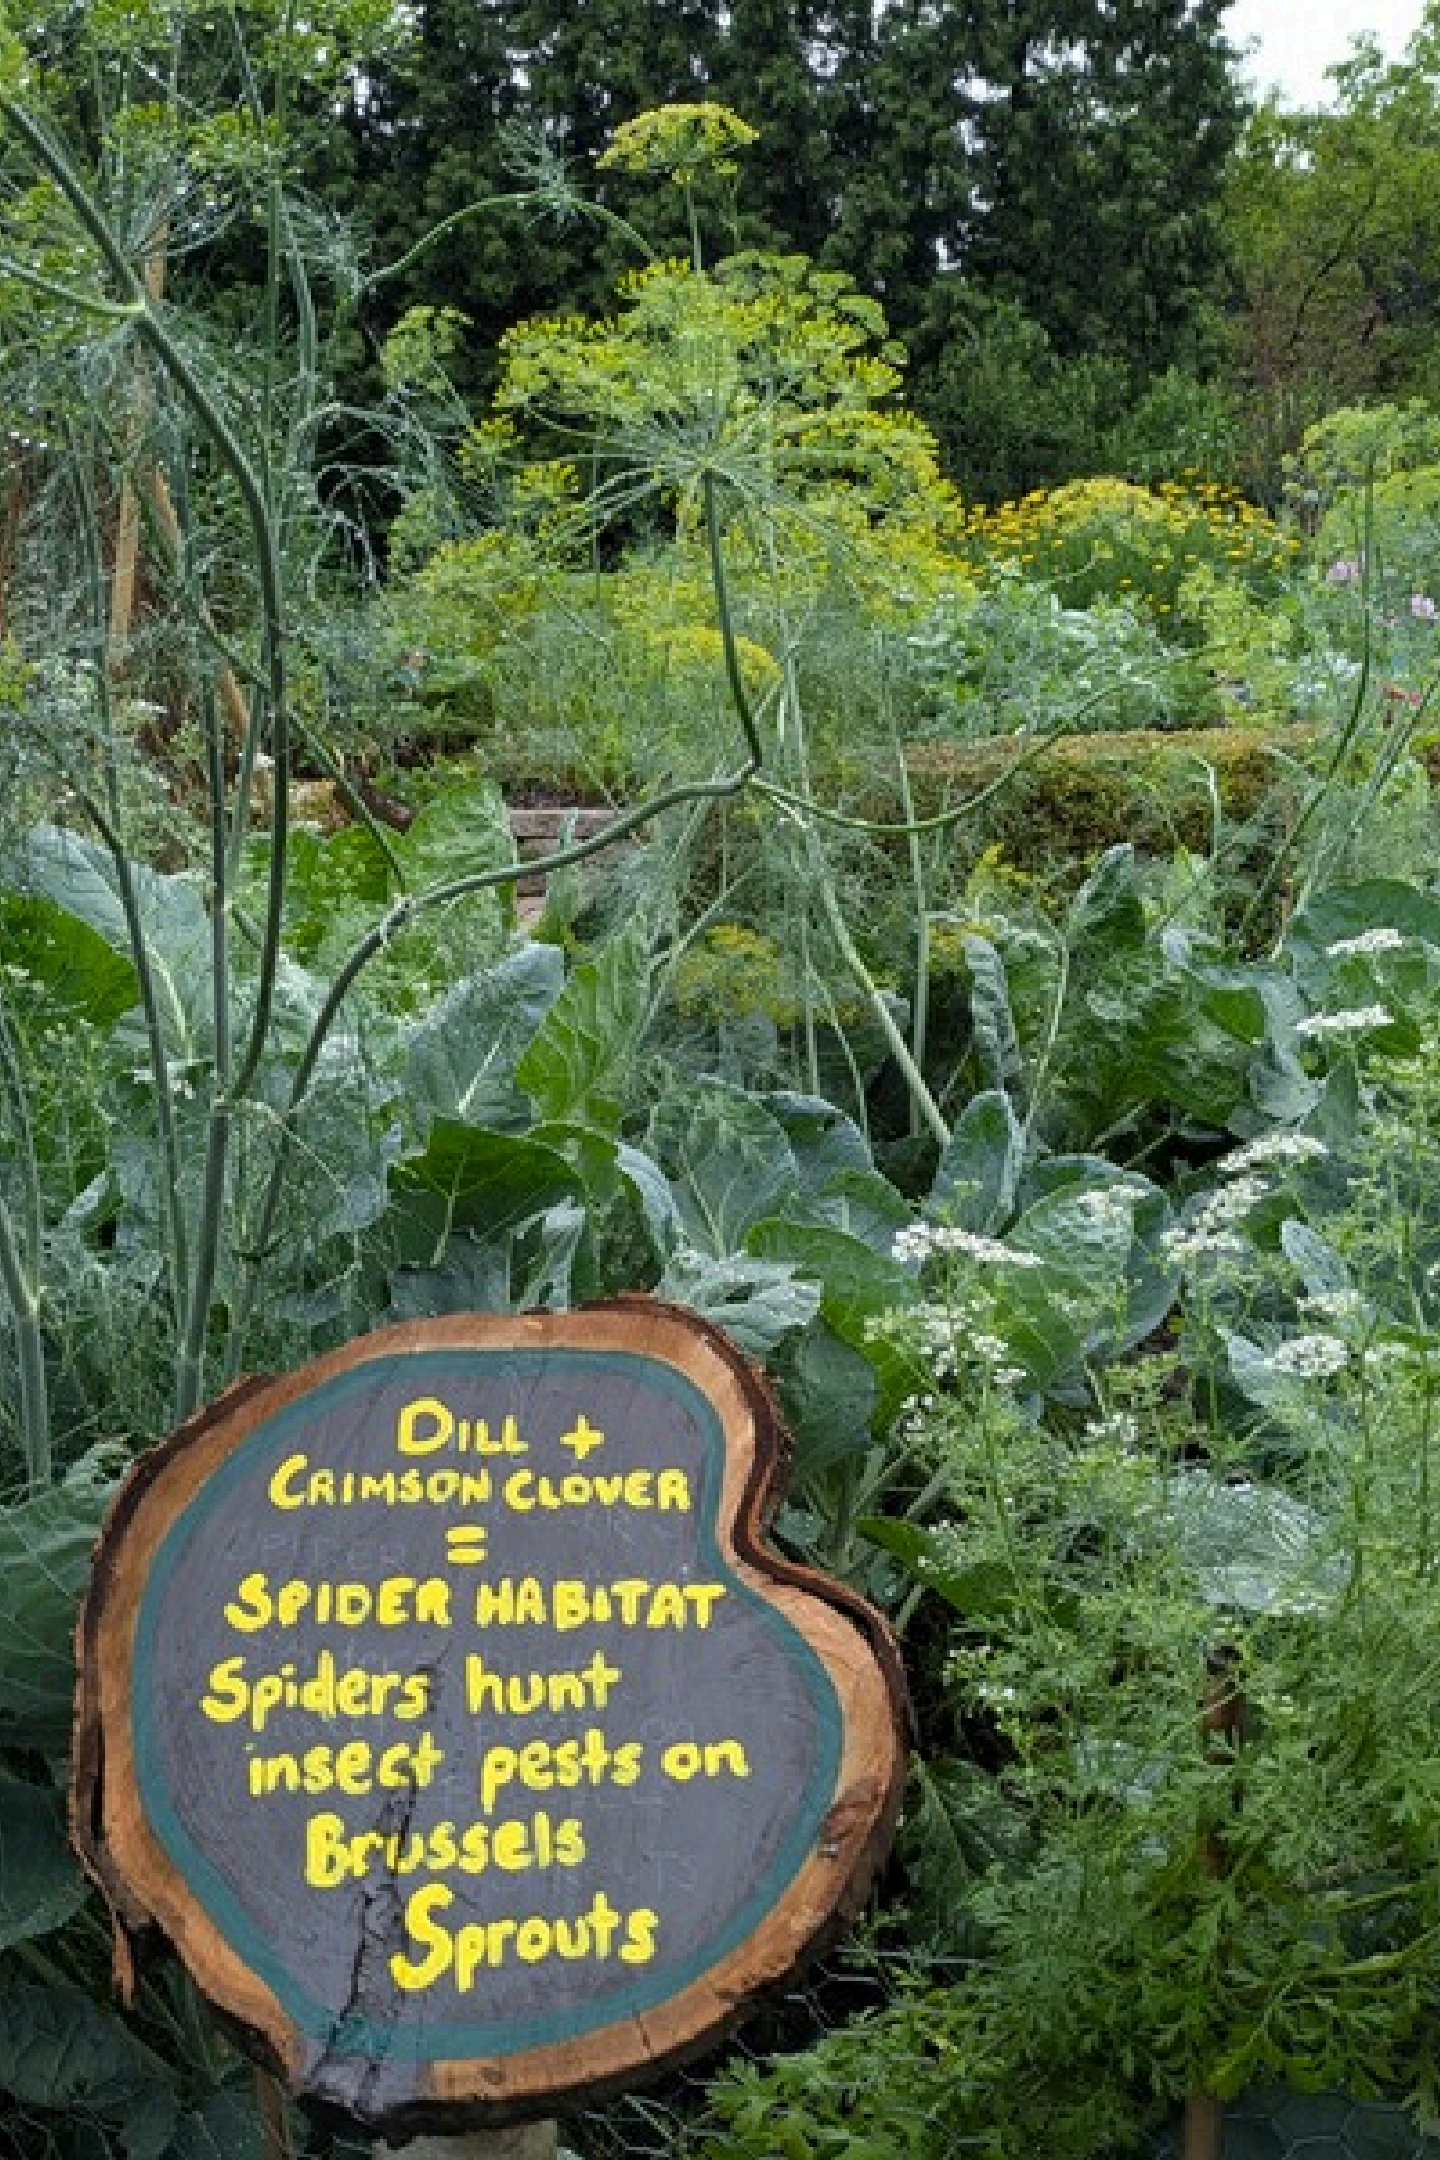 DILL +
CRIMSON CLOVER
=
SPIDER HABITAT
Spiders hunt
insect pests on
Brussels
Sprouts